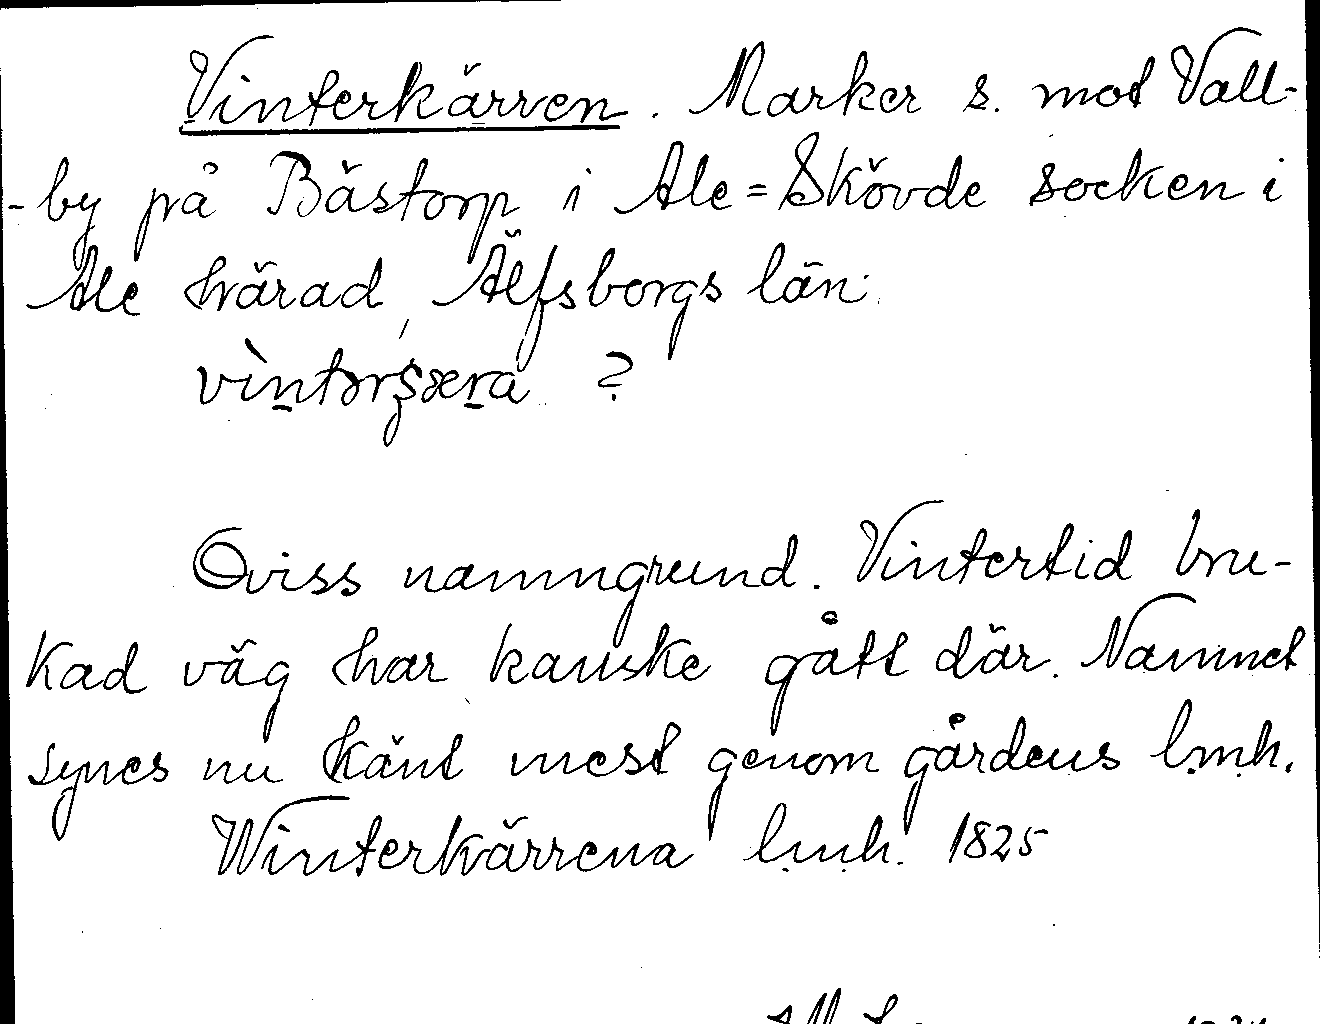 Vinterkärren. Marker s. mot Vall-
-by på Bästorp i Ale=Skövde socken i
Ale härad, Älfsborgs län.
?
Oviss namngrund. Vintertid bru-
kad väg har kanske gått där. Namnet
synes nu känt mest genom gårdens l.m.h.
Winterkärrena l.m.h. 1825